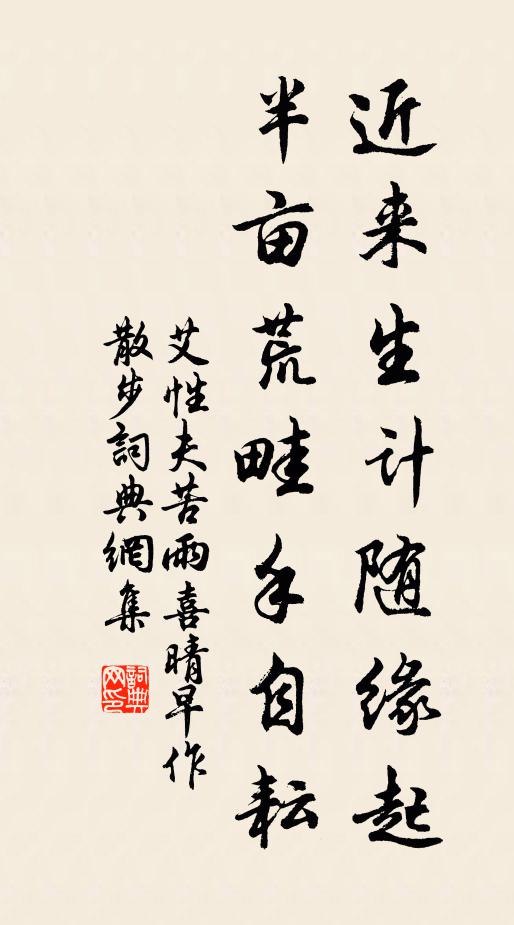 近来生计随缘起
半亩荒畦手自耘
艾性夫苦雨喜晴早作
散步詞典網集
詞典
网印